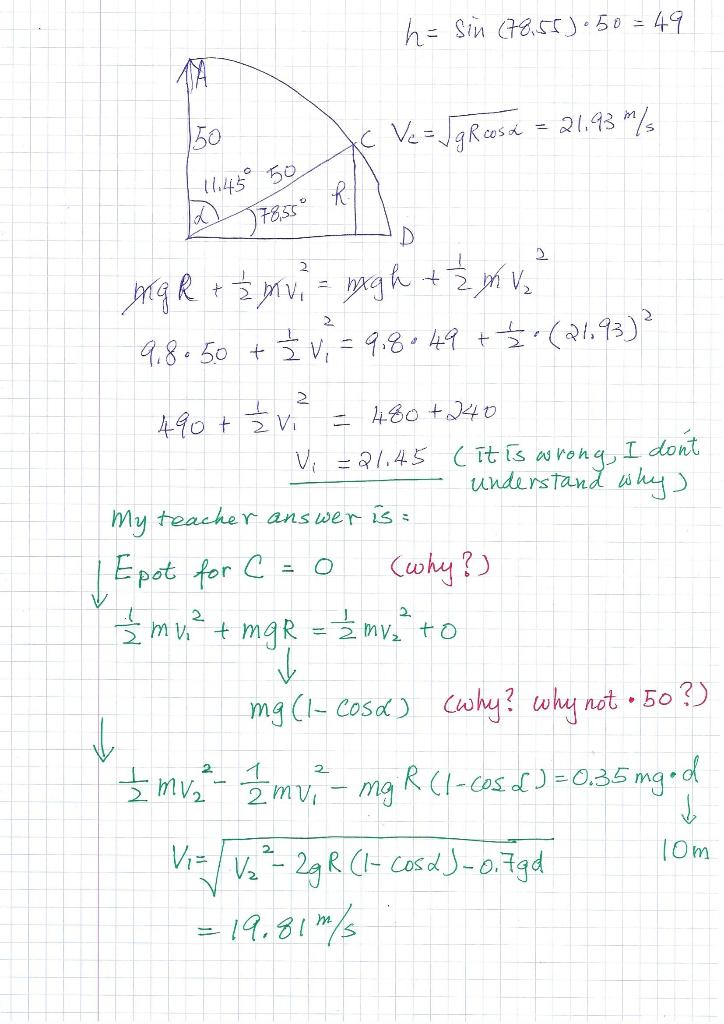 h = sin (78.55) · 50 = 49
A
50
C Vc = √gRcosα = 21.93 m/s
11.45° 50
R
α 78,55°
D
mgR + 1/2 mv₁² = mgh + 1/2 m v₂²
9.8 · 50 + 1/2 v₁² = 9.8 · 49 + 1/2 · (21.93)²
490 + 1/2 v₁² = 480 + 240
V₁ = 21.45 (it is wrong, I don't
understand why)
My teacher answer is:
↓ Epot for C = 0 (why?)
1/2 mv₁² + mgR = 1/2 mv₂² + 0
↓
mg (1 - cosα) (why? why not · 50?)
↓
1/2 mv₂² - 1/2 mv₁² - mgR (1 - cosα) = 0.35 mg · d
↓
10m
V₁ = √V₂² - 2gR (1 - cosα) - 0.7gd
= 19.81 m/s